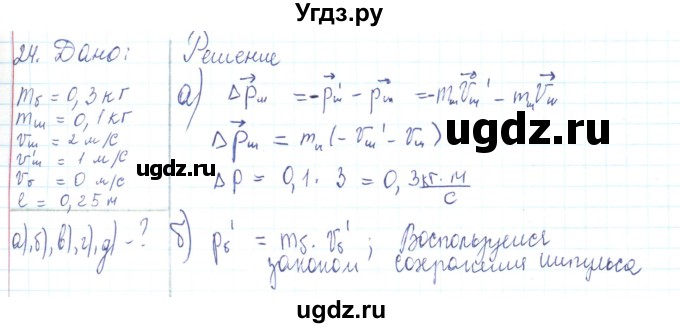 Угдз.ру
24. Дано:
mб = 0,3 кг
mш = 0,1 кг
vш = 2 м/с
v'ш = 1 м/с
vб = 0 м/с
l = 0,25 м
а), б), в), г), д) - ?
Решение
а) Δp⃗ш = -p⃗ш' - p⃗ш = -mшv⃗ш' - mшv⃗ш
Δp⃗ш = mш(-vш' - vш)
Δp = 0,1 · 3 = 0,3 кг·м/с
б) pб' = mб · vб' ; Воспользуемся
законом сохранения импульса
ugdz.ru
ugdz.ru
ugdz.ru
ugdz.ru
ugdz.ru
ugdz.ru
ugdz.ru